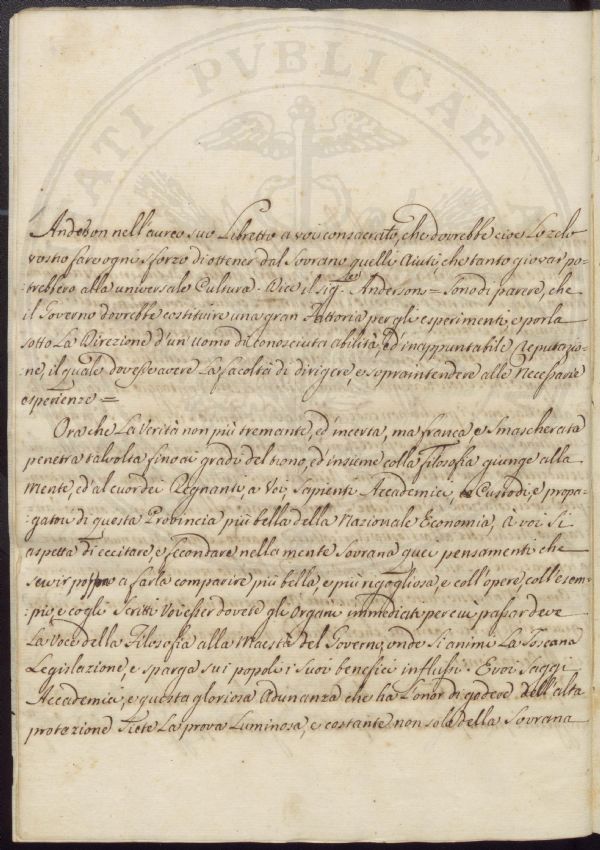 ATI PVBLICAE
Anderson nell'aureo suo Libretto a voi consacrato, che dovrebbe cioè Lo zelo
vostro fare ogni sforzo di ottener dal Sovrano quelli Aiuti che tanto giovar po-
:trebbero alla universale Cultura. Dice il Sig.re Andersons = Sono di parere, che
il Governo dovrebbe costituire una gran Fattoria per gli esperimenti, e porla
sotto La Direzione d'un uomo di conosciuta abilità, ed inappuntabile Reputazio-
:ne, il quale dovesse avere La facoltà di dirigere, e sopraintendere alle Necessarie
esperienze =
Ora che La Verità non più tremante, ed incerta, ma franca, e smascherata
penetra talvolta fino ai gradi del trono, ed insieme colla Filosofia giunge alla
Mente, ed al cuor dei Regnanti, a Voi, Sapienti Accademici, Custodi, e propa-
:gatori di questa Provincia più bella della Nazionale Economia, à voi Si
aspetta di eccitare, e secondare nella mente Sovrana quei pensamenti che
servir posson a farla comparire più bella, e più rigogliosa, e coll'opere, coll'esem-
:pio, e cogli Scritti Voi esser dovete gli Organi immediati per cui passar deve
La Voce della Filosofia alla Maestà del Governo, onde si animi La Toscana
Legislazione, e sparga sui popoli i Suoi benefici influssi. E voi Saggi
Accademici, e questa gloriosa Adunanza che ha L'onor di godere dell'alta
protezione Siete La prova Luminosa, e costante non solo della Sovrana